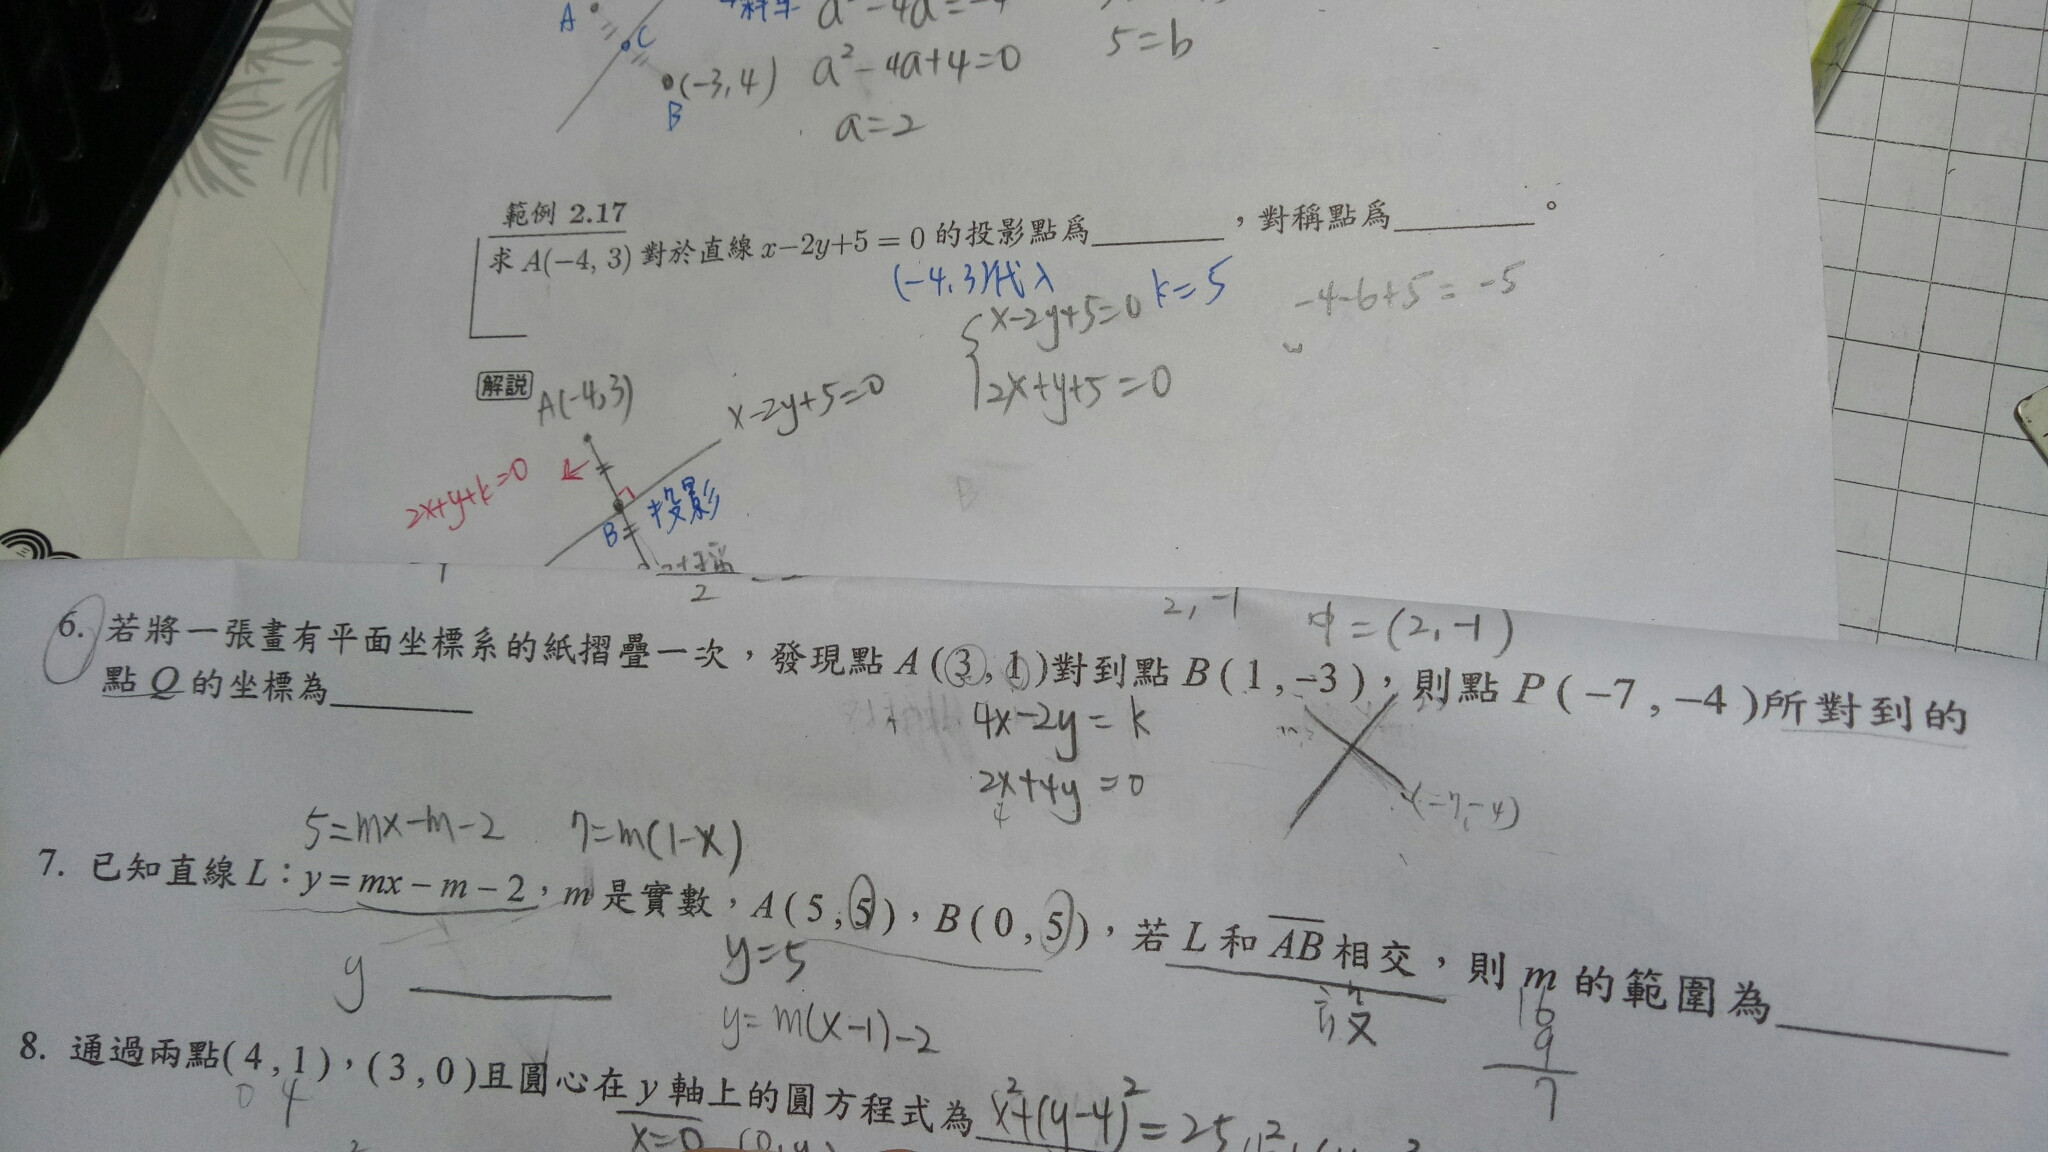 A
C
B
(-3,4)
a²-4a+4=0
a=2
5=b
範例 2.17
求 A(-4, 3) 對於直線 x-2y+5 = 0 的投影點爲________，對稱點爲________。
(-4,3)代入
k=5
-4-6+5=-5
x-2y+5=0
2x+y+5=0
解說
A(-4,3)
x-2y+5=0
2x+y+k=0
B
投影
2
2, -1
中=(2,-1)
6. 若將一張畫有平面坐標系的紙摺疊一次，發現點 A(3,1)對到點 B(1,-3)，則點 P(-7,-4)所對到的
點 Q 的坐標為________
4x-2y=k
2x+4y=0
4
(-7,-4)
5=mx-m-2
7=m(1-x)
7. 已知直線 L：y=mx-m-2，m 是實數，A(5,5)，B(0,5)，若 L 和 AB 相交，則 m 的範圍為________
y
y=5
y=m(x-1)-2
設
16
9
7
8. 通過兩點(4,1)，(3,0)且圓心在 y 軸上的圓方程式為 x²+(y-4)²=25
0 4
x=0